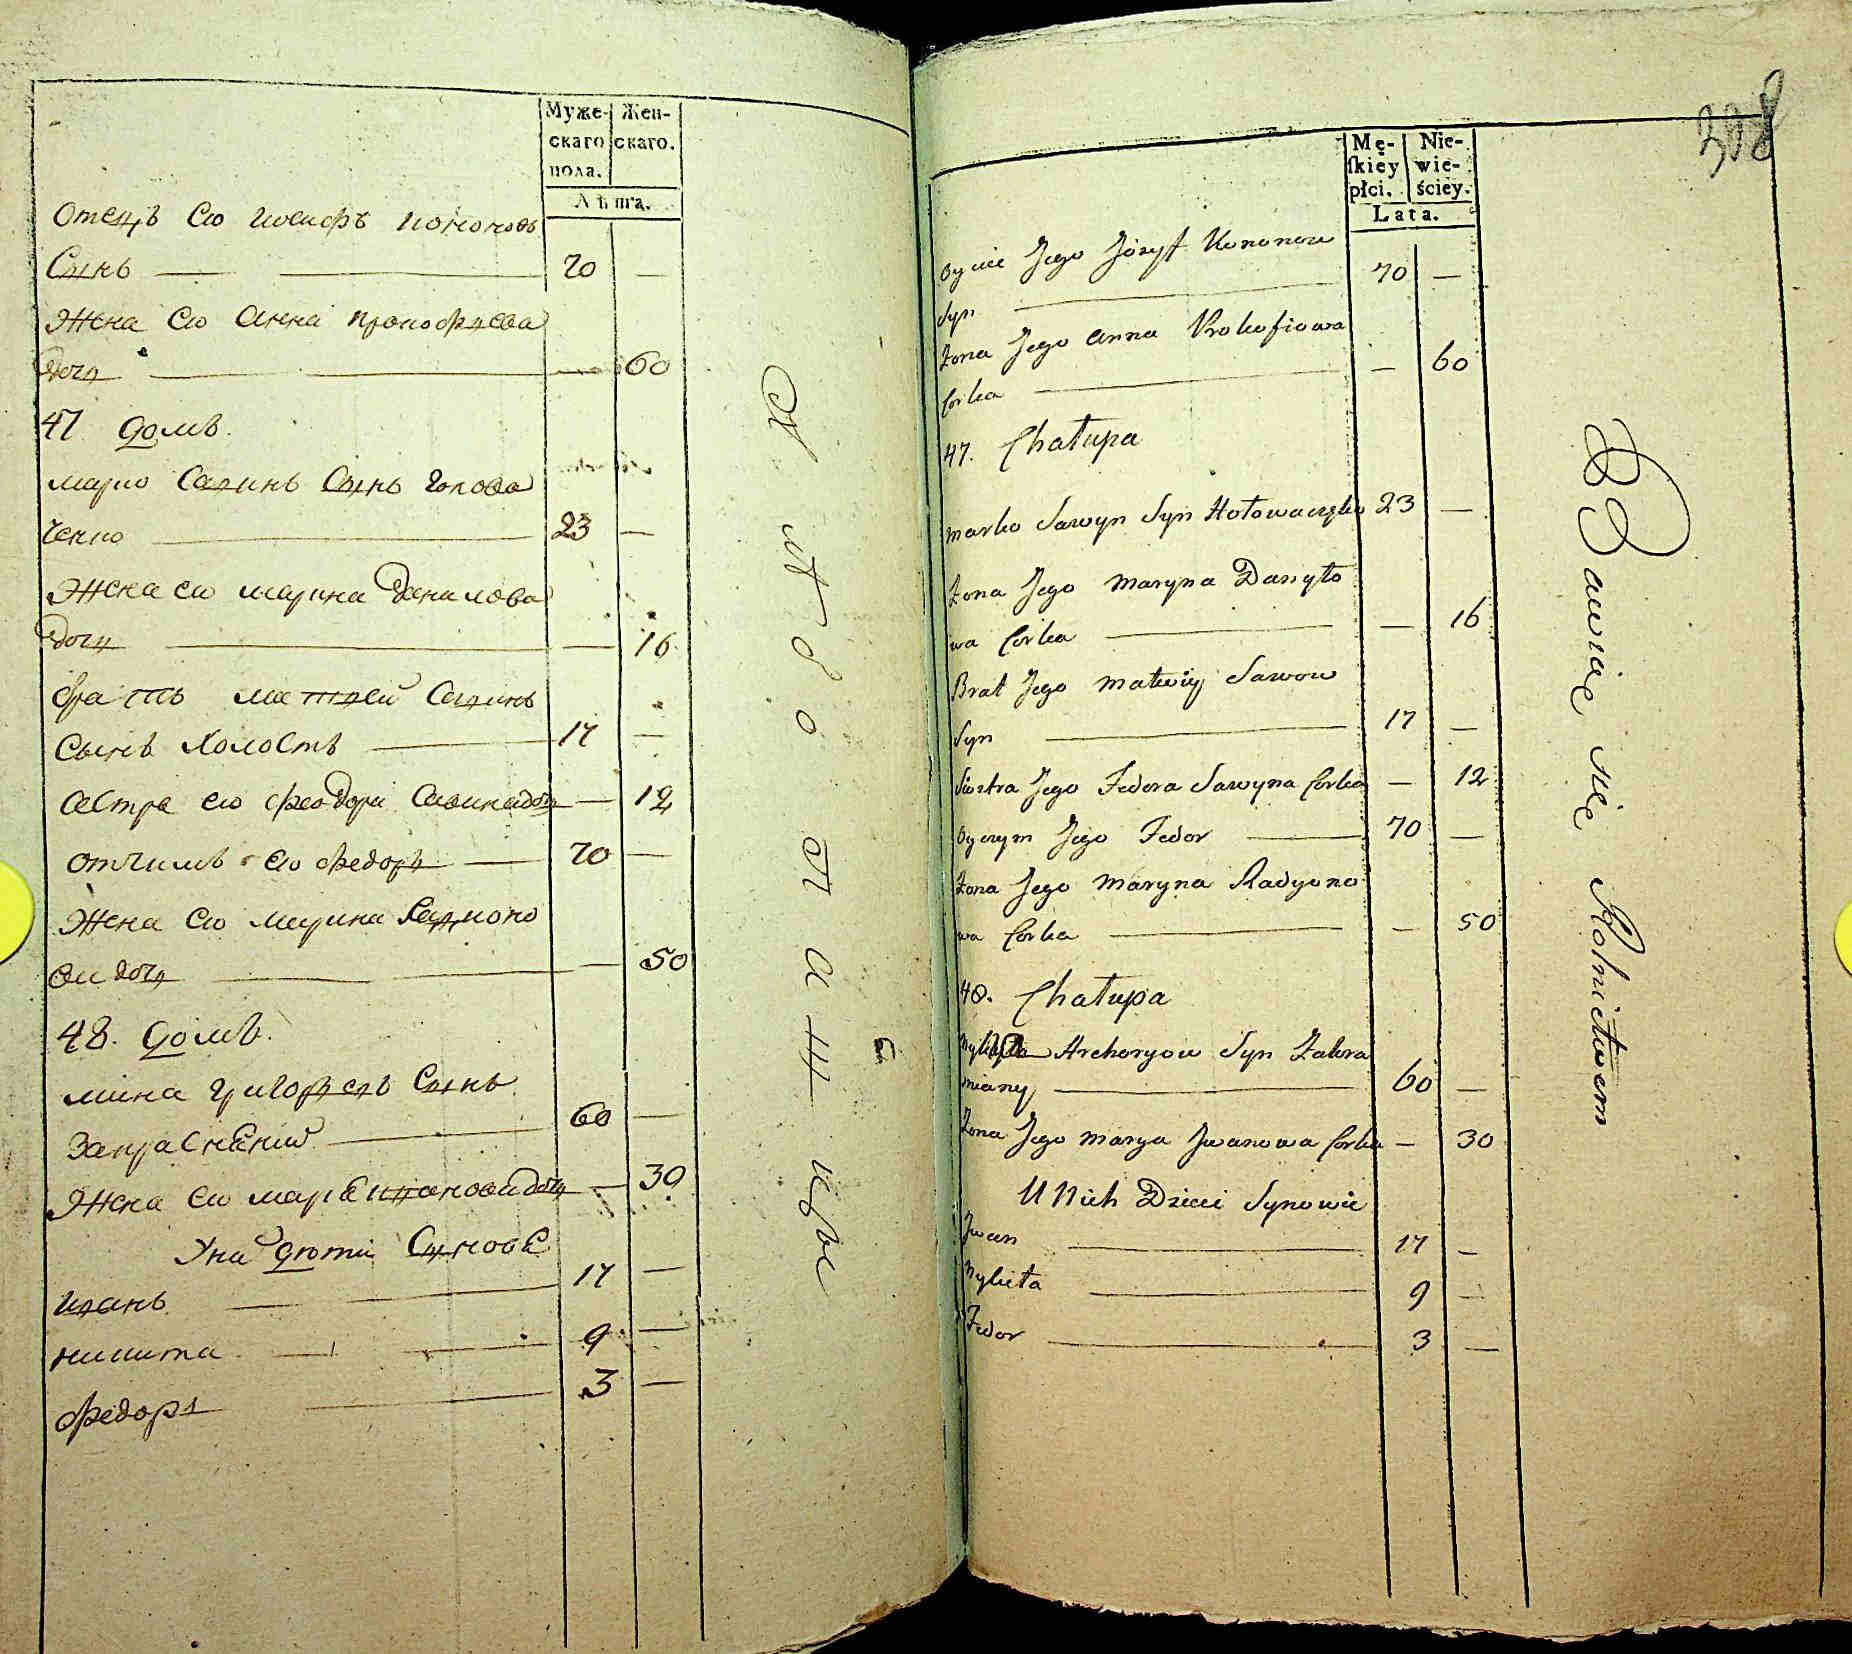 Муже-
скаго
пола.
Жен-
скаго.
Лѣта.
Отецъ Ево Иосифъ Кононовъ
Сынъ — 70 —
Жена Ево Анна Прокофиева
дочь — 60
47 домъ.
Марко Савинъ Сынъ Голова
ченко 23 —
Жена ево Марина Данилова
дочь — 16
братъ Матвей Савинъ
Сынъ Холостъ 17 —
Сестра ево Феодора Савинадочь — 12
отчимъ ево Федоръ 70 —
Жена Ево Марина Радионо
ва дочь — 50
48. домъ.
Мина Григорьевъ Сынъ
60 —
Жена Ево Маря Ивановадочь — 30
У них дети Синовя
Иванъ 17 —
никита 9 —
Федоръ 3 —
Хлебопашцы
328
Mę-
ſkiey
płci.
Nie-
wie-
ściey.
Lata.
Oyciec Jego Józyf Kononow
Syn 70 —
Żona Jego Anna Prokofiowa
Corka — 60
47. Chałupa
Marko Sawyn Syn Hołowaczęko 23 —
Żona Jego Maryna Danyło
wa Corka — 16
Brat Jego Matwiy Sawow
Syn 17 —
Siostra Jego Fedora Sawyna Corka — 12
Oyczym Jego Fedor 70 —
Żona Jego Maryna Radyono
wa Corka — 50
48. Chałupa
Hrehoryow Syn Zakra
sniany 60 —
Żona Jego Marya Jwanowa Corka — 30
U Nich Dzieci Synowie
Jwan 17 —
Mykieta 9 —
Fedor 3 —
Bawiąc się Rolnictwem